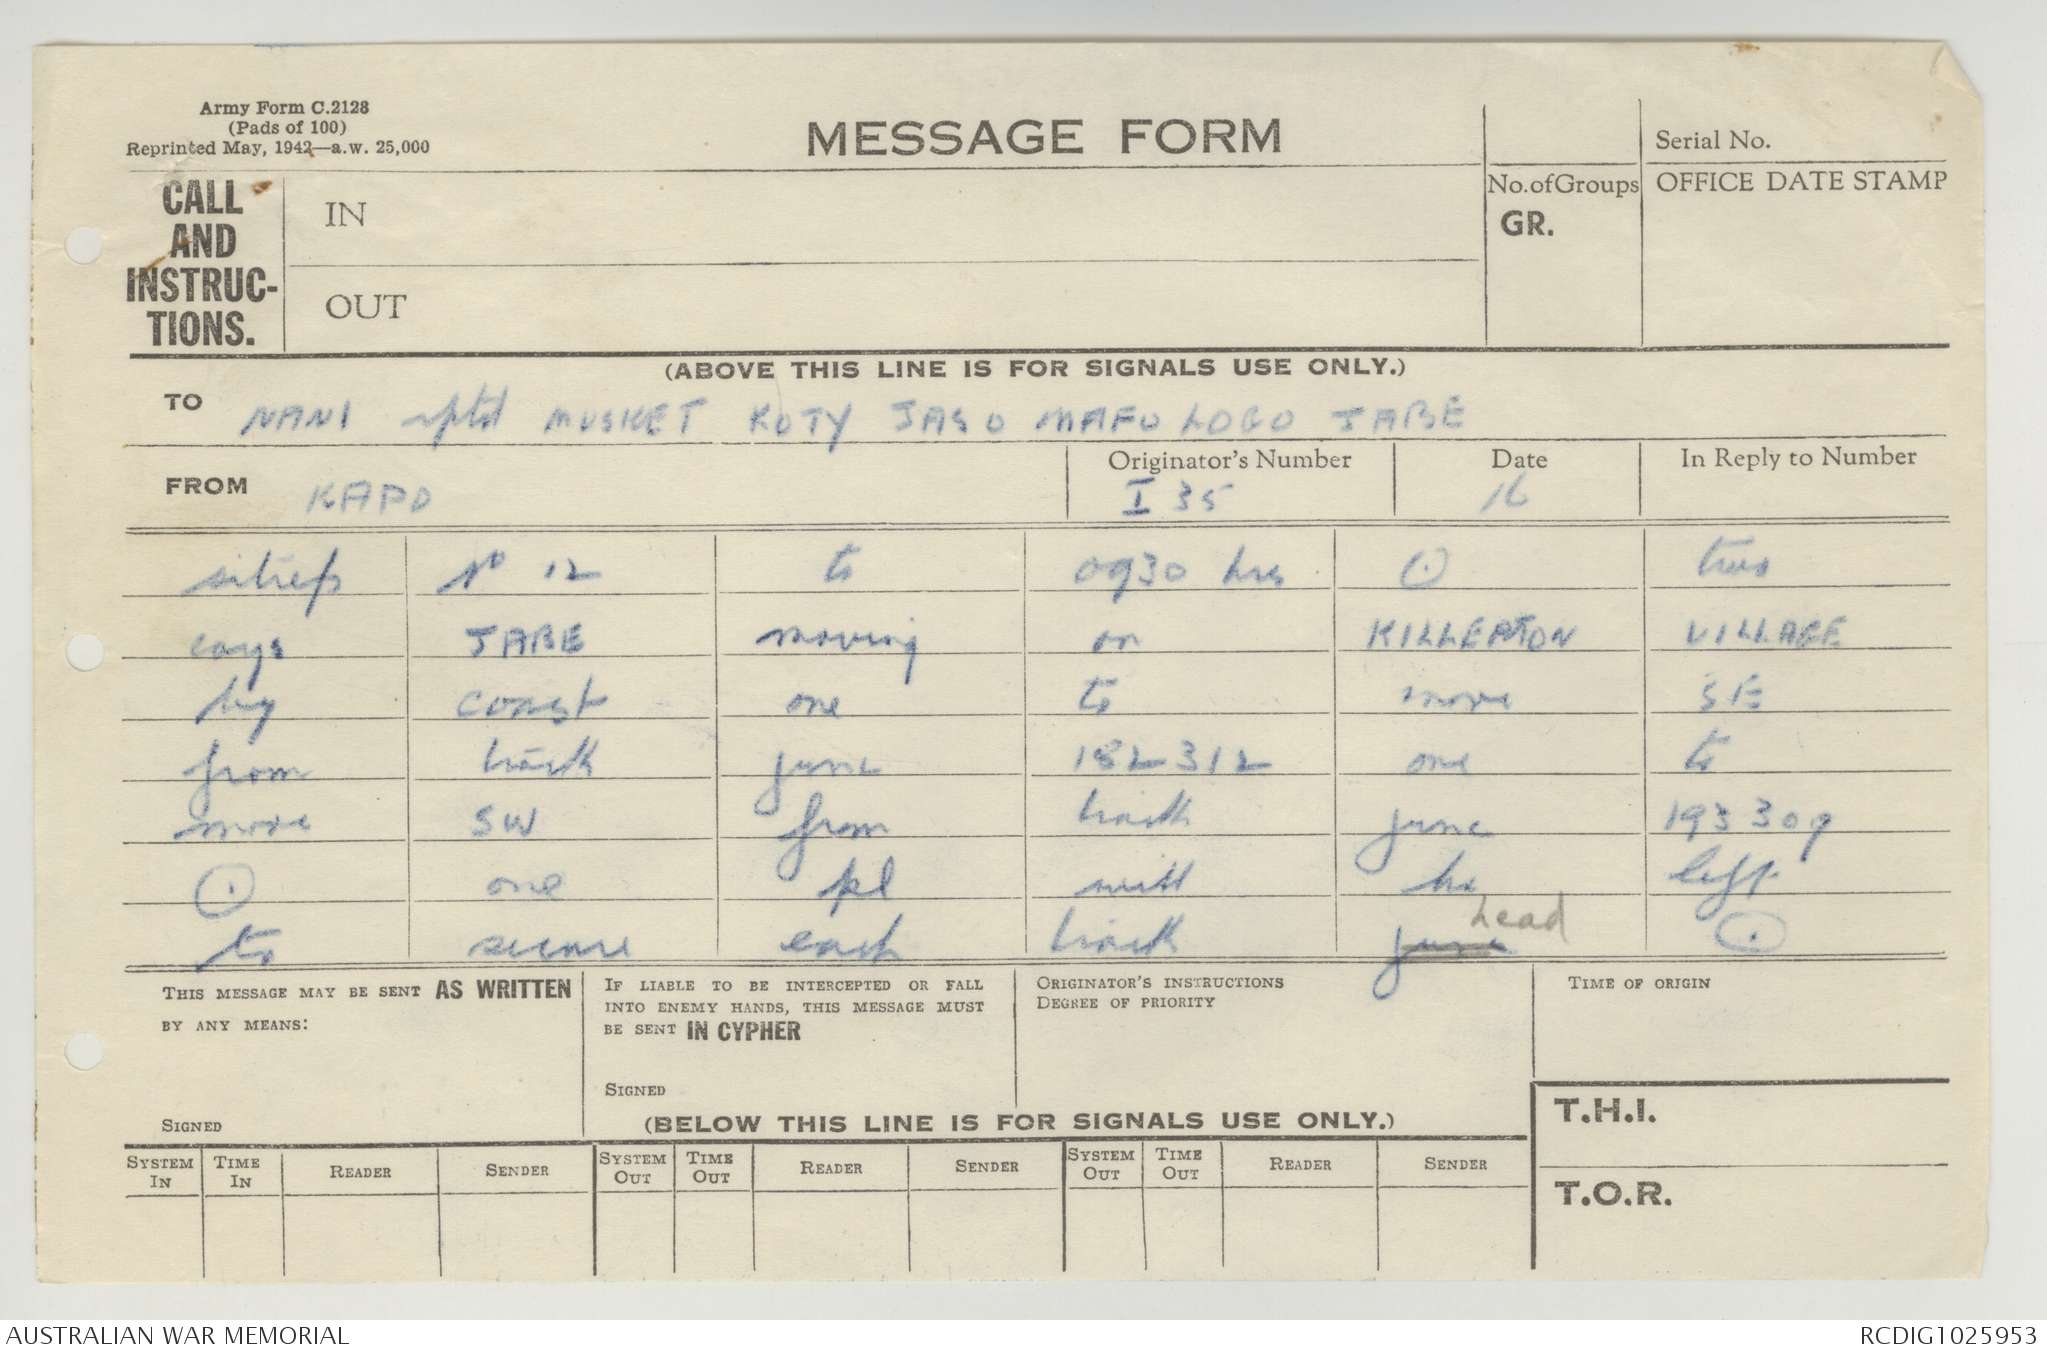 Army Form C.2128
(Pads of 100)
Reprinted May, 1942—a.w. 25,000
MESSAGE FORM
Serial No.
CALL AND INSTRUC-TIONS.
IN
OUT
No. of Groups
GR.
OFFICE DATE STAMP
(ABOVE THIS LINE IS FOR SIGNALS USE ONLY.)
TO NANI rptd MUSKET KOTY JASO MAFU LOGO JABE
FROM KAPO
Originator's Number I 35
Date 16
In Reply to Number
sitrep No 12 to 0930 hrs (.) two
coys JABE moving on KILLERTON VILLAGE
by coast one to move SE
from track junc 182312 one to
move SW from track junc 193309
(.) one pl will be left
to secure each track junc head (.)
THIS MESSAGE MAY BE SENT AS WRITTEN
BY ANY MEANS:
SIGNED
IF LIABLE TO BE INTERCEPTED OR FALL
INTO ENEMY HANDS, THIS MESSAGE MUST
BE SENT IN CYPHER
SIGNED
ORIGINATOR'S INSTRUCTIONS
DEGREE OF PRIORITY
TIME OF ORIGIN
(BELOW THIS LINE IS FOR SIGNALS USE ONLY.)
T.H.I.
T.O.R.
SYSTEM IN TIME IN READER SENDER SYSTEM OUT TIME OUT READER SENDER SYSTEM OUT TIME OUT READER SENDER
AUSTRALIAN WAR MEMORIAL
RCDIG1025953